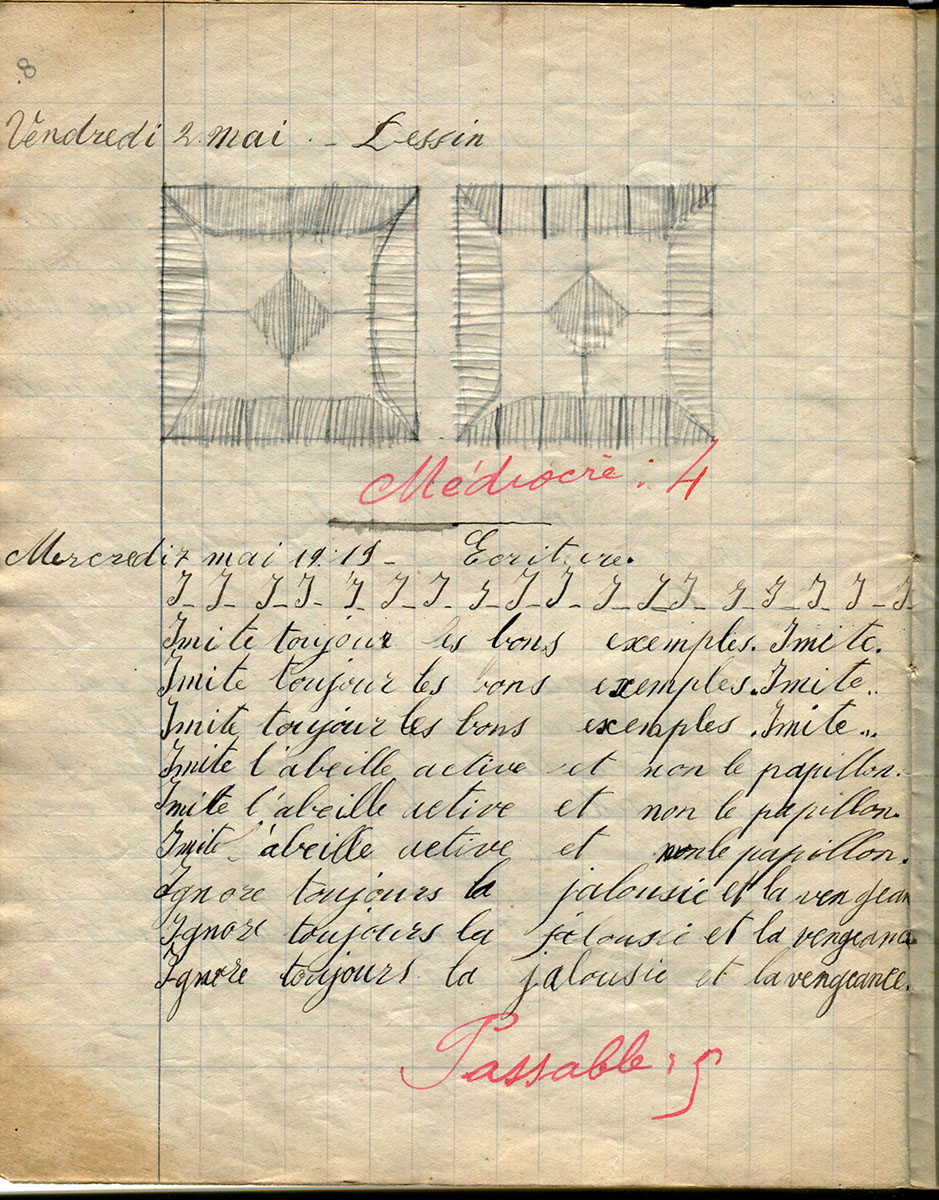 8
Vendredi 2 mai. - Dessin
Médiocre : 4
Mercredi 7 mai 1919 - Ecriture.
I - I - I - I - I - I - I - I - I - I - I - I - I - I - I - I - I - I
Imite toujour les bons exemples. Imite.
Imite toujour les bons exemples. Imite..
Imite toujour les bons exemples. Imite...
Imite l'abeille active et non le papillon.
Imite l'abeille active et non le papillon.
Imite l'abeille active et non le papillon.
Ignore toujours la jalousie et la vengean
Ignore toujours la jalousie et la vengeance
Ignore toujours la jalousie et la vengeance.
Passable : 5